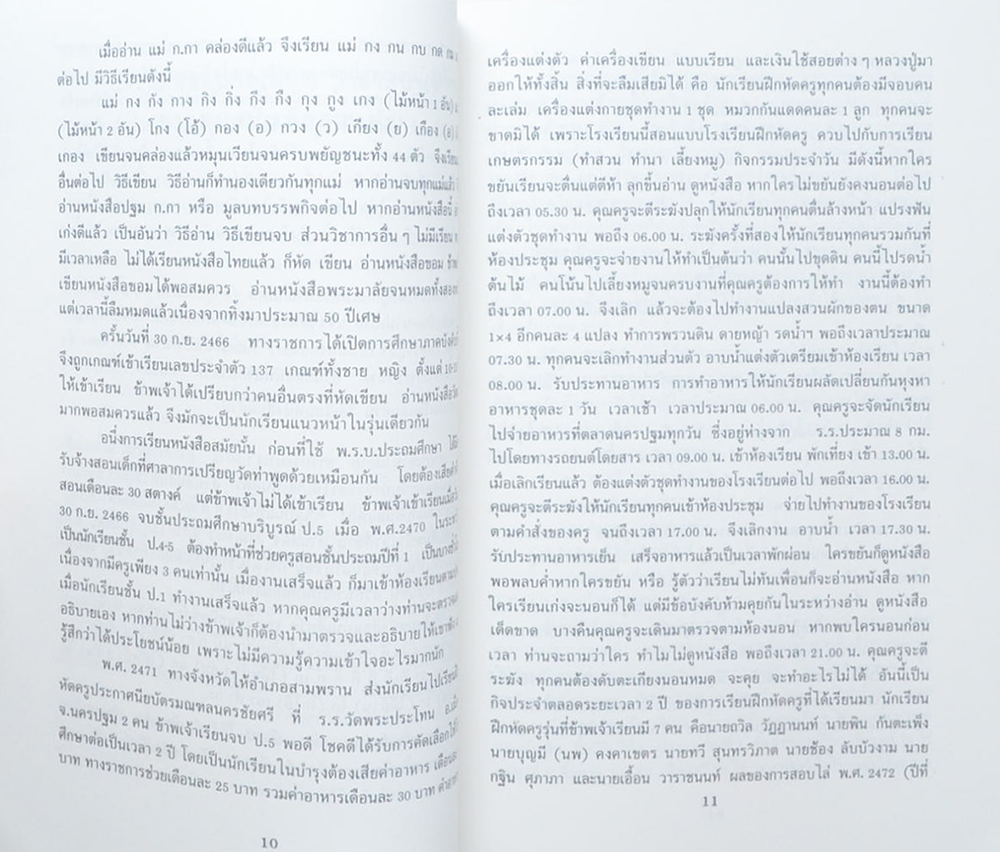 เมื่ออ่าน แม่ ก.กา คล่องดีแล้ว จึงเรียน แม่ กง กน กบ กด กม
ต่อไป มีวิธีเรียนดังนี้
แม่ กง กัง กาง กิง กิ่ง กึง กืง กุง กูง เกง (ไม้หน้า 1 อัน)
(ไม้หน้า 2 อัน) โกง (โอ้) กอง (อ) กวง (ว) เกียง (ย) เกือง (อ)
เกอง เขียนจนคล่องแล้วหมุนเวียนจนครบพยัญชนะทั้ง 44 ตัว จึงเรียน
อื่นต่อไป วิธีเขียน วิธีอ่านก็ทำนองเดียวกันทุกแม่ หากอ่านจบทุกแม่แล้ว
อ่านหนังสือปฐม ก.กา หรือ มูลบทบรรพกิจต่อไป หากอ่านหนังสือนี้
เก่งดีแล้ว เป็นอันว่า วิธีอ่าน วิธีเขียนจบ ส่วนวิชาการอื่น ๆ ไม่มีเรียน
มีเวลาเหลือ ไม่ได้เรียนหนังสือไทยแล้ว ก็หัด เขียน อ่านหนังสือขอม
เขียนหนังสือขอมได้พอสมควร อ่านหนังสือพระมาลัยจนหมดทั้งสอง
แต่เวลานี้ลืมหมดแล้วเนื่องจากทิ้งมาประมาณ 50 ปีเศษ
ครั้นวันที่ 30 ก.ย. 2466 ทางราชการได้เปิดการศึกษาภาคบังคับ
จึงถูกเกณฑ์เข้าเรียนเลขประจำตัว 137 เกณฑ์ทั้งชาย หญิง ตั้งแต่
ให้เข้าเรียน ข้าพเจ้าได้เปรียบกว่าคนอื่นตรงที่หัดเขียน อ่านหนังสือ
มากพอสมควรแล้ว จึงมักจะเป็นนักเรียนแนวหน้าในรุ่นเดียวกัน
อนึ่งการเรียนหนังสือสมัยนั้น ก่อนที่ใช้ พ.ร.บ.ประถมศึกษา
รับจ้างสอนเด็กที่ศาลาการเปรียญวัดท่าพูดด้วยเหมือนกัน โดยต้องเสีย
สอนเดือนละ 30 สตางค์ แต่ข้าพเจ้าไม่ได้เข้าเรียน ข้าพเจ้าเข้าเรียนเมื่อ
30 ก.ย. 2466 จบชั้นประถมศึกษาบริบูรณ์ ป.5 เมื่อ พ.ศ.2470
เป็นนักเรียนชั้น ป.4-5 ต้องทำหน้าที่ช่วยครูสอนชั้นประถมปีที่ 1
เนื่องจากมีครูเพียง 3 คนเท่านั้น เมื่องานเสร็จแล้ว ก็มาเข้าห้องเรียน
เมื่อนักเรียนชั้น ป.1 ทำงานเสร็จแล้ว หากคุณครูมีเวลาว่างท่านจะตรวจ
อธิบายเอง หากท่านไม่ว่างข้าพเจ้าก็ต้องนำมาตรวจและอธิบายให้เขา
รู้สึกว่าได้ประโยชน์น้อย เพราะไม่มีความรู้ความเข้าใจอะไรมากนัก
พ.ศ. 2471 ทางจังหวัดให้อำเภอสามพราน ส่งนักเรียนไปเรียน
หัดครูประกาศนียบัตรมณฑลนครชัยศรี ที่ ร.ร.วัดพระประโทน
จ.นครปฐม 2 คน ข้าพเจ้าเรียนจบ ป.5 พอดี โชคดีได้รับการคัดเลือก
ศึกษาต่อเป็นเวลา 2 ปี โดยเป็นนักเรียนในบำรุงต้องเสียค่าอาหาร เดือนละ
บาท ทางราชการช่วยเดือนละ 25 บาท รวมค่าอาหารเดือนละ 30 บาท
10
เครื่องแต่งตัว ค่าเครื่องเขียน แบบเรียน และเงินใช้สอยต่าง ๆ หลวงปู่มา
ออกให้ทั้งสิ้น สิ่งที่จะลืมเสียมิได้ คือ นักเรียนฝึกหัดครูทุกคนต้องมีจอบคน
ละเล่ม เครื่องแต่งกายชุดทำงาน 1 ชุด หมวกกันแดดคนละ 1 ลูก ทุกคนจะ
ขาดมิได้ เพราะโรงเรียนนี้สอนแบบโรงเรียนฝึกหัดครู ควบไปกับการเรียน
เกษตรกรรม (ทำสวน ทำนา เลี้ยงหมู) กิจกรรมประจำวัน มีดังนี้หากใคร
ขยันเรียนจะตื่นแต่ตีห้า ลุกขึ้นอ่าน ดูหนังสือ หากใครไม่ขยันยังคงนอนต่อไป
ถึงเวลา 05.30 น. คุณครูจะตีระฆังปลุกให้นักเรียนทุกคนตื่นล้างหน้า แปรงฟัน
แต่งตัวชุดทำงาน พอถึง 06.00 น. ระฆังครั้งที่สองให้นักเรียนทุกคนรวมกันที่
ห้องประชุม คุณครูจะจ่ายงานให้ทำเป็นต้นว่า คนนั้นไปขุดดิน คนนี้ไปรดน้ำ
ต้นไม้ คนโน้นไปเลี้ยงหมูจนครบงานที่คุณครูต้องการให้ทำ งานนี้ต้องทำ
ถึงเวลา 07.00 น. จึงเลิก แล้วจะต้องไปทำงานแปลงสวนผักของตน ขนาด
1×4 อีกคนละ 4 แปลง ทำการพรวนดิน ดายหญ้า รดน้ำฯ พอถึงเวลาประมาณ
07.30 น. ทุกคนจะเลิกทำงานส่วนตัว อาบน้ำแต่งตัวเตรียมเข้าห้องเรียน เวลา
08.00 น. รับประทานอาหาร การทำอาหารให้นักเรียนผลัดเปลี่ยนกันหุงหา
อาหารชุดละ 1 วัน เวลาเช้า เวลาประมาณ 06.00 น. คุณครูจะจัดนักเรียน
ไปจ่ายอาหารที่ตลาดนครปฐมทุกวัน ซึ่งอยู่ห่างจาก ร.ร.ประมาณ 8 กม.
ไปโดยทางรถยนต์โดยสาร เวลา 09.00 น. เข้าห้องเรียน พักเที่ยง เข้า 13.00 น.
เมื่อเลิกเรียนแล้ว ต้องแต่งตัวชุดทำงานของโรงเรียนต่อไป พอถึงเวลา 16.00 น.
คุณครูจะตีระฆังให้นักเรียนทุกคนเข้าห้องประชุม จ่ายไปทำงานของโรงเรียน
ตามคำสั่งของครู จนถึงเวลา 17.00 น. จึงเลิกงาน อาบน้ำ เวลา 17.30 น.
รับประทานอาหารเย็น เสร็จอาหารแล้วเป็นเวลาพักผ่อน ใครขยันก็ดูหนังสือ
พอพลบค่ำหากใครขยัน หรือ รู้ตัวว่าเรียนไม่ทันเพื่อนก็จะอ่านหนังสือ หาก
ใครเรียนเก่งจะนอนก็ได้ แต่มีข้อบังคับห้ามคุยกันในระหว่างอ่าน ดูหนังสือ
เด็ดขาด บางคืนคุณครูจะเดินมาตรวจตามห้องนอน หากพบใครนอนก่อน
เวลา ท่านจะถามว่าใคร ทำไมไม่ดูหนังสือ พอถึงเวลา 21.00 น. คุณครูจะตี
ระฆัง ทุกคนต้องดับตะเกียงนอนหมด จะคุย จะทำอะไรไม่ได้ อันนี้เป็น
กิจประจำตลอดระยะเวลา 2 ปี ของการเรียนฝึกหัดครูที่ได้เรียนมา นักเรียน
ฝึกหัดครูรุ่นที่ข้าพเจ้าเรียนมี 7 คน คือนายถวิล วัฏฏานนท์ นายพิน กันตะเพ็ง
นายบุญมี (นพ) คงคาเขตร นายทวี สุนทรวิภาต นายช้อง ลับบัวงาม นาย
กฐิน ศุภาภา และนายเอื้อน วาราชนนท์ ผลของการสอบไล่ พ.ศ. 2472 (ปีที่
11